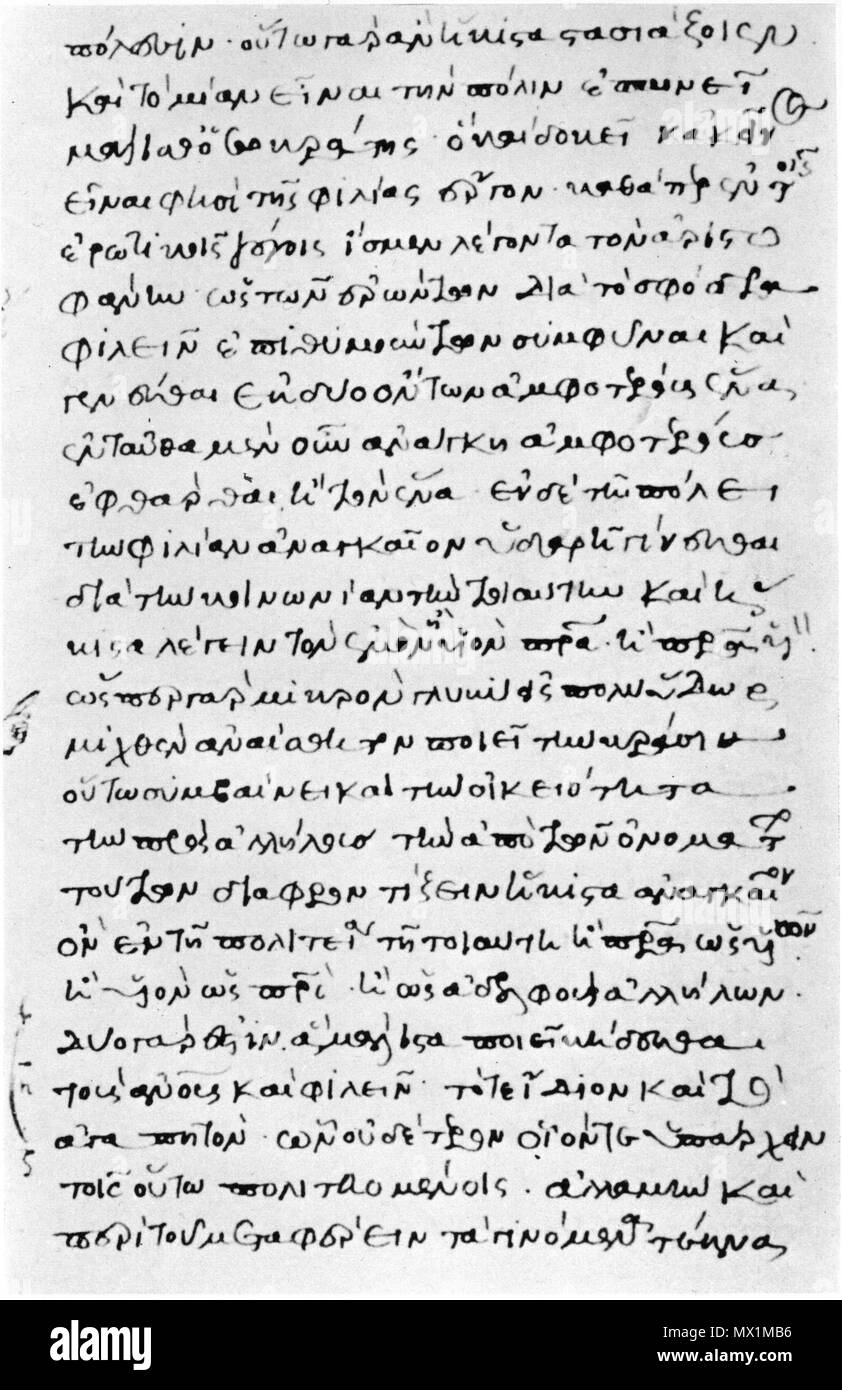 πόλεσιν · οὕτω γὰρ ἂν ἥκιστα στασιάζοιεν
καὶ τὸ μίαν εἶναι τὴν πόλιν ἐπαινεῖ
μάλισθ' ὁ σωκράτης ὃ καὶ δοκεῖ κἀκεῖν
εἶναι φησὶ τῆς φιλίας ἔργον · καθάπερ ἐν τοῖς
ἐρωτικοῖς λόγοις ἴσμεν λέγοντα τὸν ἀριστο
φάνην ὡς τῶν ἐρώντων διὰ τὸ σφόδρα
φιλεῖν ἐπιθυμούντων συμφῦναι καὶ
γενέσθαι ἐκ δύο ὄντων ἀμφοτέρους ἕνα
ἐνταῦθα μὲν οὖν ἀνάγκη ἀμφοτέρους
ἐφθάρθαι ἢ τὸν ἕνα · ἐν δὲ τῇ πόλει
τὴν φιλίαν ἀναγκαῖον ὑδαρῆ γίνεσθαι
διὰ τὴν κοινωνίαν τὴν τοιαύτην καὶ ἥ
κιστα λέγειν τὸν ἐμὸν ἢ υἱὸν πρα · ἢ πρα υἱ
ὥσπερ γὰρ μικρὸν γλυκὺ εἰς πολὺ ὕδωρ
μιχθὲν ἀναίσθητον ποιεῖ τὴν κράσιν
οὕτω συμβαίνει καὶ τὴν οἰκειότητα
τὴν πρὸς ἀλλήλους τὴν ἀπὸ τῶν ὀνομάτ
τούτων διαφροντίζειν ἥκιστα ἀναγκαῖον
ὂν ἐν τῇ πολιτείᾳ τῇ τοιαύτῃ ἢ πρα ὡς υἱ
ἢ υἱὸν ὡς πρι · ἢ ὡς ἀδελφοὺς ἀλλήλων ·
δύο γάρ ἐστιν ἃ μάλιστα ποιεῖ κήδεσθαι
τοὺς ἀνους καὶ φιλεῖν · τό τε ἴδιον καὶ τὸ
ἀγαπητὸν · ὧν οὐδέτερον οἷόν τε ὑπάρχειν
τοῖς οὕτω πολιτευομένοις · ἀλλὰ μὴν καὶ
περὶ τοῦ μεταφέρειν τὰ γινόμενα τέκνα
alamy
Image ID: MX1MB6
www.alamy.com